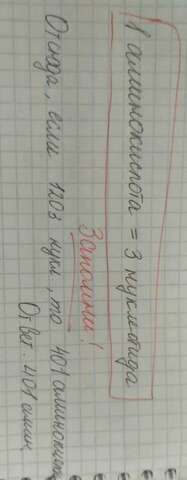 1 аминокислота = 3 нуклеотида
Запомни!
Отсюда, если 1203 нукл, то 401 аминокислот
Ответ: 401 амин